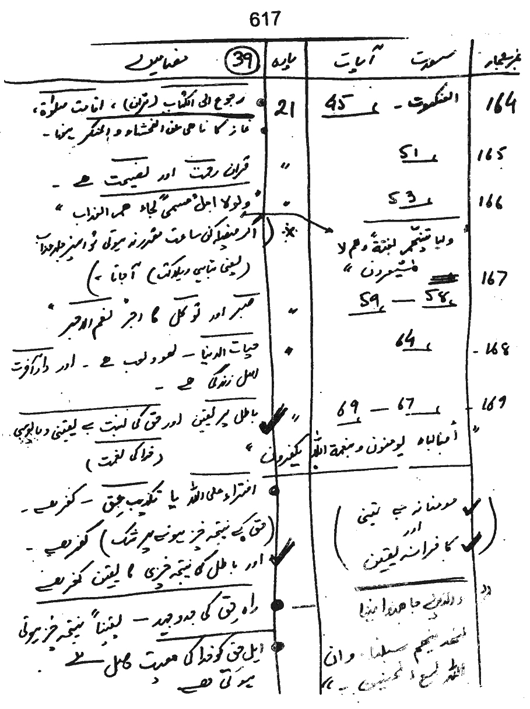 617
نمبر شمار سورت آیات پارہ 39 مضامین
164 العنکبوت ۔ 45 21 رجوع الی الکتاب (قرآن) ، اقامت صلوٰۃ ،
نماز کا ناہی عن الفحشاء و المنکر ہونا ۔
165 51 " قرآن رحمت اور نصیحت ہے ۔
166 53 " " ولولا اجل مسمی لجاء ھم العذاب "
ولیاتینھم بغتۃ وھم لا
یشعرون "
اگر فیصلہ کی ساعت مقرر نہ ہوتی تو
(یعنی آجاتا ۔)
167 58 — 59 " صبر اور توکل کا اجر نعم
168 64 " حیات الدنیا — لھو و لعب ہے ۔ اور دار آخرت
اصل زندگی ہے ۔
169 67 — 69 " باطل پر یقین اور حق کی نسبت بے یقینی و مایوسی
" أفبالباطل یومنون و بنعمۃ اللہ یکفرون " (خدا کی نعمت)
افتراء علی اللہ یا تکذیب حق — کفر ہے ۔
(مومنانہ بے یقینی
اور
کافرانہ یقین)
(حق کے نتیجہ خیز ہونے پر شک) کفر ہے ۔
اور باطل کی نتیجہ خیزی کا یقین کفر ہے
" والذین جاھدوا فینا
لنھدینھم سبلنا وان
اللہ لمع المحسنین ۔ "
راہ حق کی جدوجہد — یقیناً نتیجہ خیز ہوتی
اہل حق کو خدا کی معیت حاصل
ہوتی ہے